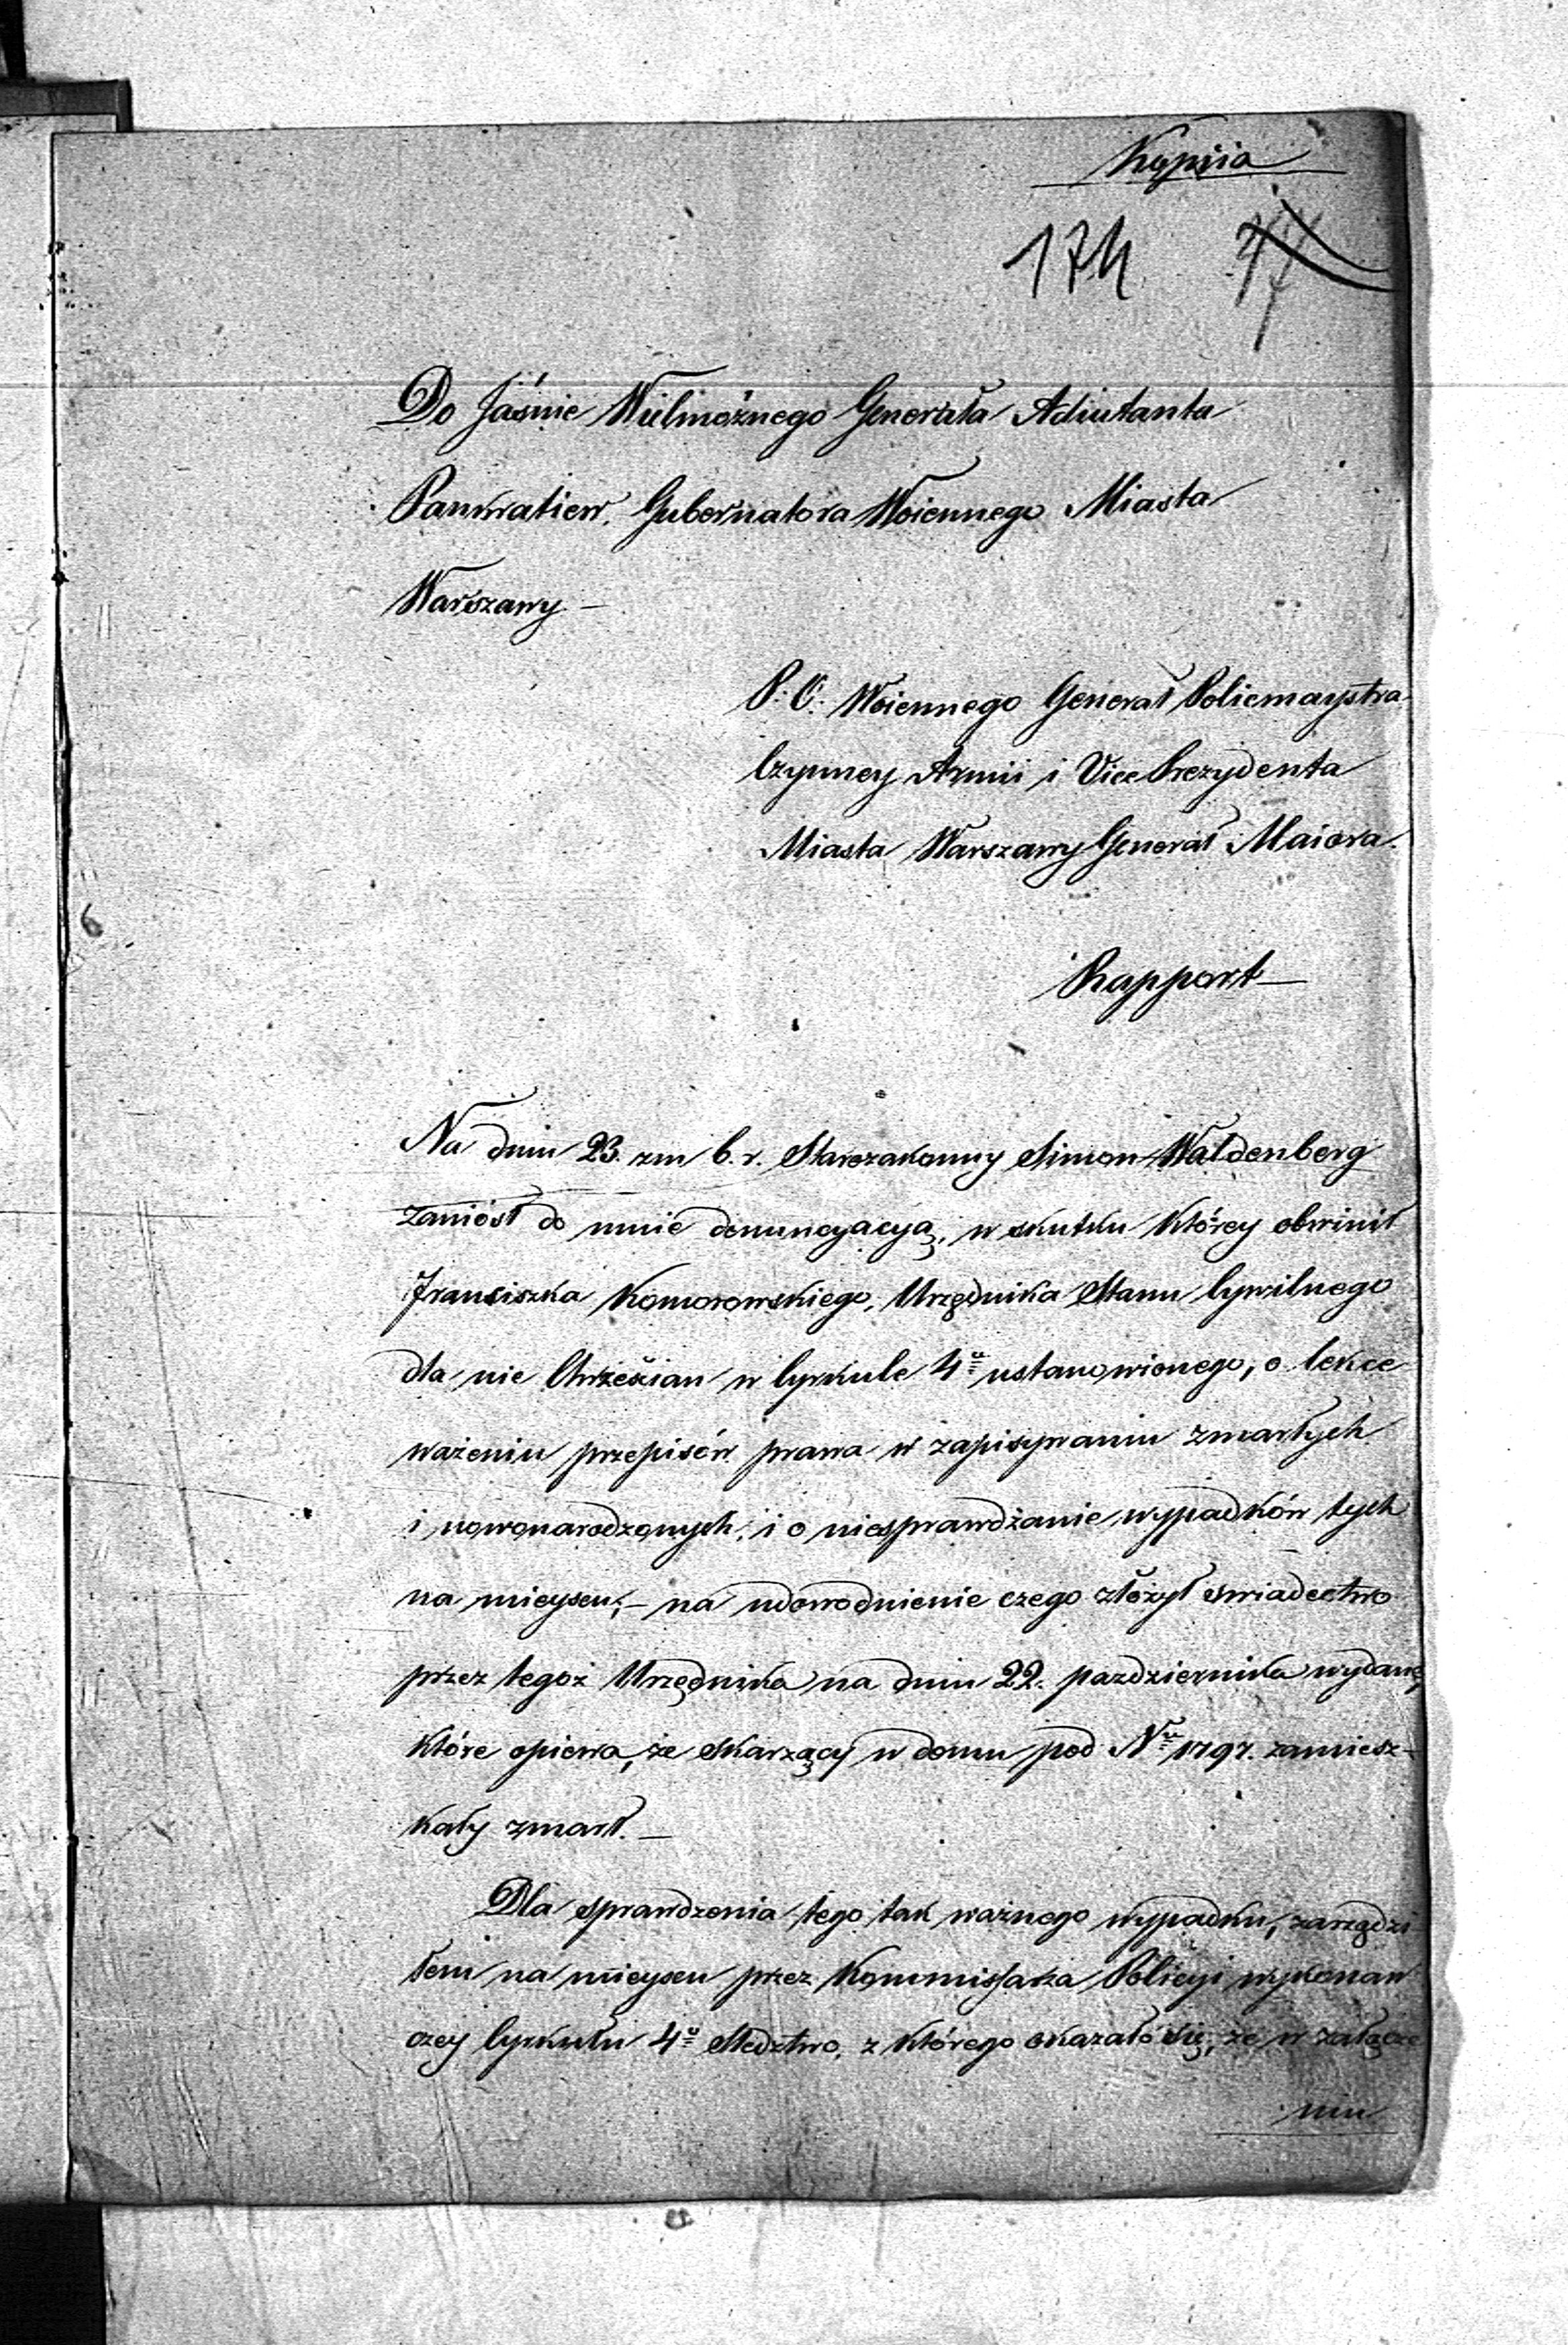 Kopiia
174
47
Do Jaśnie Wielmożnego Generała Adiutanta
Pankratiew, Gubernatora Woiennego Miasta
Warszawy –
P: O: Woiennego Generał Policmaystra
Czynney Armii i Vice Prezydenta
Miasta Warszawy Generał Maiora.
Rapport –
Na dniu 23. zm b. r. Starozakonny Simon Waldenberg
zaniósł do mnie denuncyacyą, w skutku którey obwinił
Franciszka Komorowskiego, Urzędnika Stanu Cywilnego
dla nie Chrześcian w Cyrkule 4u ustanowionego, o lekce
ważeniu przepisów prawa w zapisywaniu zmarłych
i nowonarodzonych, i o niesprawdzanie wypadków tych
na mieyscu; – na udowodnienie czego złożył swiadectwo
przez tegoż Urzędnika na dniu 22. pazdziernika wydane,
które opiewa, że skarzący w domu pod Nru 1797. zamiesz-
kały zmarł. –
Dla sprawdzenia tego tak ważnego wypadku, zarządzi
łem na mieyscu przez Kommissarza Policyi wykonaw
czey Cyrkułu 4u Sledztwo, z którego okazało się, że w załącze
niu